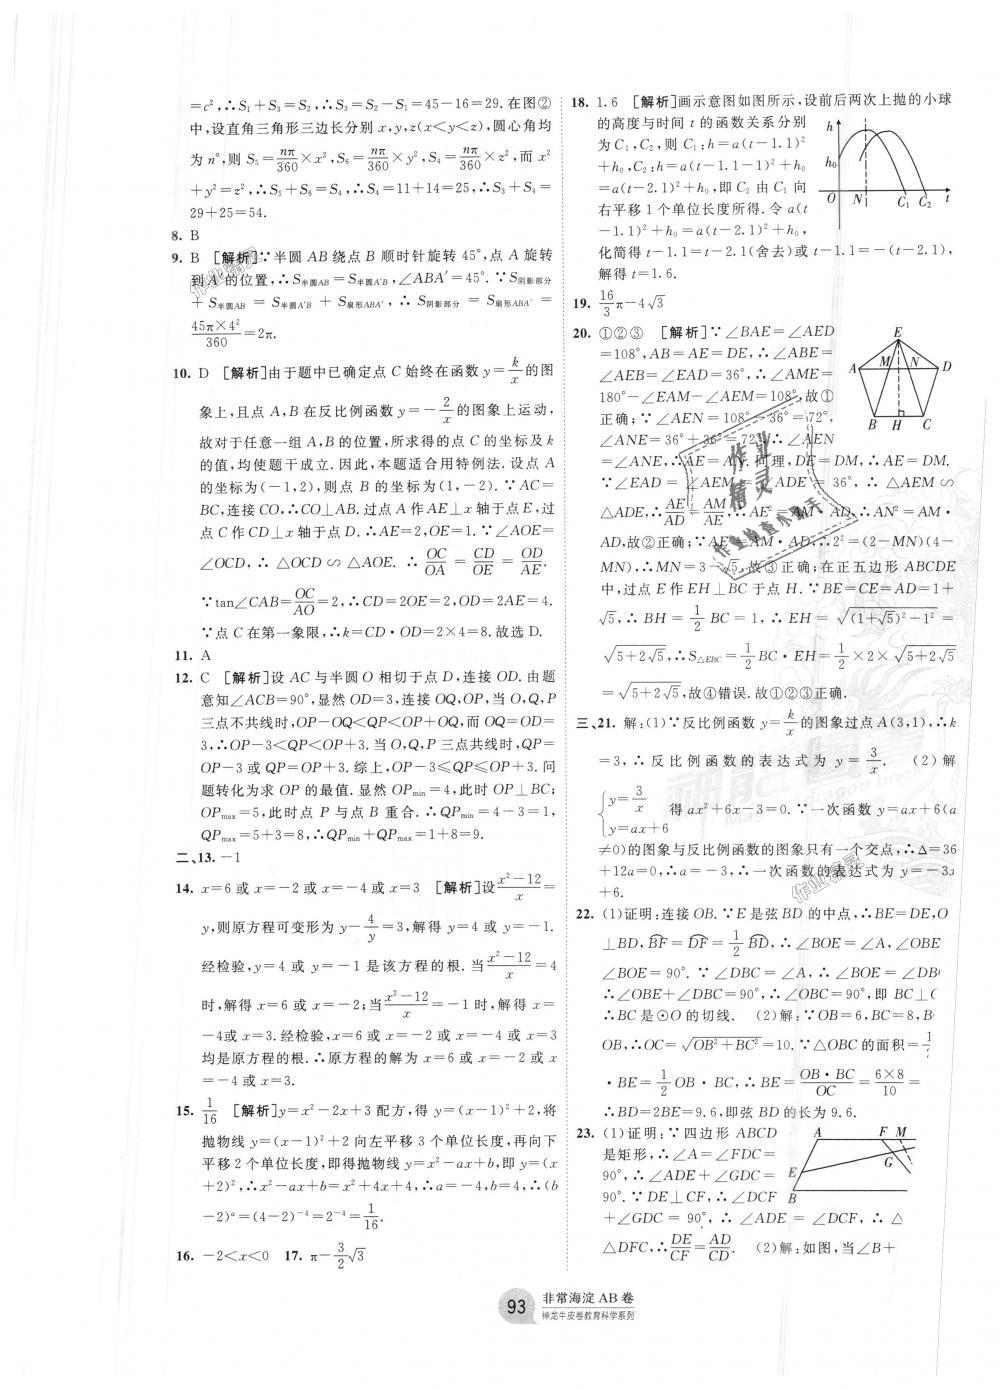 =c²,∴S₁+S₃=S₂,∴S₃=S₂-S₁=45-16=29.在图②
中,设直角三角形三边长分别 x,y,z(x<y<z),圆心角均
为 n°,则 S₅=nπ/360×x²,S₆=nπ/360×y²,S₄=nπ/360×z²,而 x²
+y²=z²,∴S₅+S₆=S₄,∴S₄=11+14=25,∴S₃+S₄=
29+25=54.
8. B
9. B [解析]∵半圆 AB 绕点 B 顺时针旋转 45°,点 A 旋转
到 A′的位置,∴S半圆AB=S半圆A′B,∠ABA′=45°.∵S阴影部分
+S半圆AB=S半圆A′B+S扇形ABA′,∴S阴影部分=S扇形ABA′=
45π×4²/360=2π.
10. D [解析]由于题中已确定点 C 始终在函数 y=k/x的图
象上,且点 A,B 在反比例函数 y=-2/x的图象上运动,
故对于任意一组 A,B 的位置,所求得的点 C 的坐标及 k
的值,均使题干成立.因此,本题适合用特例法.设点 A
的坐标为(-1,2),则点 B 的坐标为(1,-2).∵AC=
BC,连接 CO,∴CO⊥AB.过点 A 作 AE⊥x 轴于点 E,过
点 C 作 CD⊥x 轴于点 D.∴AE=2,OE=1.∵∠AOE=
∠OCD,∴△OCD∽△AOE.∴OC/OA=CD/OE=OD/AE.
∵tan∠CAB=OC/AO=2,∴CD=2OE=2,OD=2AE=4.
∵点 C 在第一象限,∴k=CD·OD=2×4=8.故选 D.
11. A
12. C [解析]设 AC 与半圆 O 相切于点 D,连接 OD.由题
意知∠ACB=90°,显然 OD=3,连接 OQ,OP,当 O,Q,P
三点不共线时,OP-OQ<QP<OP+OQ,而 OQ=OD=
3,∴OP-3<QP<OP+3.当 O,Q,P 三点共线时,QP=
OP-3 或 QP=OP+3.综上,OP-3≤QP≤OP+3.问
题转化为求 OP 的最值.显然 OPmin=4,此时 OP⊥BC;
OPmax=5,此时点 P 与点 B 重合.∴QPmin=4-3=1,
QPmax=5+3=8,∴QPmin+QPmax=1+8=9.
二、13. -1
14. x=6 或 x=-2 或 x=-4 或 x=3 [解析]设x²-12/x=
y,则原方程可变形为 y-4/y=3,解得 y=4 或 y=-1.
经检验,y=4 或 y=-1 是该方程的根.当x²-12/x=4
时,解得 x=6 或 x=-2;当x²-12/x=-1 时,解得 x=
-4 或 x=3.经检验,x=6 或 x=-2 或 x=-4 或 x=3
均是原方程的根.∴原方程的解为 x=6 或 x=-2 或 x
=-4 或 x=3.
15. 1/16 [解析]y=x²-2x+3 配方,得 y=(x-1)²+2,将
抛物线 y=(x-1)²+2 向左平移 3 个单位长度,再向下
平移 2 个单位长度,即得抛物线 y=x²-ax+b,即 y=(x
+2)²,∴x²-ax+b=x²+4x+4,∴a=-4,b=4,∴(b
-2)ᵃ=(4-2)⁻⁴=2⁻⁴=1/16.
16. -2<x<0 17. π-3/2√3
18. 1.6 [解析]画示意图如图所示,设前后两次上抛的小球
的高度与时间 t 的函数关系分别
为 C₁,C₂,则 C₁:h=a(t-1.1)²
+h₀,C₂:h=a(t-1.1-1)²+h₀
=a(t-2.1)²+h₀,即 C₂ 由 C₁ 向
右平移 1 个单位长度所得.令 a(t
-1.1)²+h₀=a(t-2.1)²+h₀,
化简得 t-1.1=t-2.1(舍去)或 t-1.1=-(t-2.1),
解得 t=1.6.
h
h₀
O N C₁ C₂ t
19. 16/3π-4√3
20. ①②③ [解析]∵∠BAE=∠AED
=108°,AB=AE=DE,∴∠ABE=
∠AEB=∠EAD=36°,∴∠AME=
180°-∠EAM-∠AEM=108°,故①
正确;∵∠AEN=108°-36°=72°,
∠ANE=36°+36°=72°,∴∠AEN
=∠ANE,∴AE=AN.同理,DE=DM,∴AE=DM.
∵∠EAD=∠AEM=∠ADE=36°,∴△AEM∽
△ADE,∴AE/AD=AM/AE,∴AE²=AM·AD,∴AN²=AM·
AD,故②正确;∵AE²=AM·AD,∴2²=(2-MN)(4-
MN),∴MN=3-√5,故③正确;在正五边形 ABCDE
中,过点 E 作 EH⊥BC 于点 H.∵BE=CE=AD=1+
√5,∴BH=1/2BC=1,∴EH=√((1+√5)²-1²)=
√(5+2√5),∴S△EBC=1/2BC·EH=1/2×2×√(5+2√5)
=√(5+2√5),故④错误.故①②③正确.
E
A M N D
B H C
三、21. 解:(1)∵反比例函数 y=k/x的图象过点 A(3,1),∴k
=3,∴反比例函数的表达式为 y=3/x. (2)解
{y=3/x
y=ax+6 得 ax²+6x-3=0.∵一次函数 y=ax+6(a
≠0)的图象与反比例函数的图象只有一个交点,∴Δ=36
+12a=0,∴a=-3,∴一次函数的表达式为 y=-3x
+6.
22. (1)证明:连接 OB.∵E 是弦 BD 的中点,∴BE=DE,O
⊥BD,BF=DF=1/2BD,∴∠BOE=∠A,∠OBE
∠BOE=90°.∵∠DBC=∠A,∴∠BOE=∠DB
∴∠OBE+∠DBC=90°,∴∠OBC=90°,即 BC⊥
∴BC 是⊙O 的切线. (2)解:∵OB=6,BC=8,B
OB,∴OC=√(OB²+BC²)=10.∵△OBC 的面积=
·BE=1/2OB·BC,∴BE=OB·BC/OC=6×8/10=
∴BD=2BE=9.6,即弦 BD 的长为 9.6.
23. (1)证明:∵四边形 ABCD
是矩形,∴∠A=∠FDC=
90°,∴∠ADE+∠GDC=
90°.∵DE⊥CF,∴∠DCF
+∠GDC=90°,∴∠ADE=∠DCF,∴△
△DFC,∴DE/CF=AD/CD. (2)解:如图,当∠B+
A F M
G
E
B
93
非常海淀 AB 卷
神龙牛皮卷教育科学系列
作业精灵
作业检查小助手